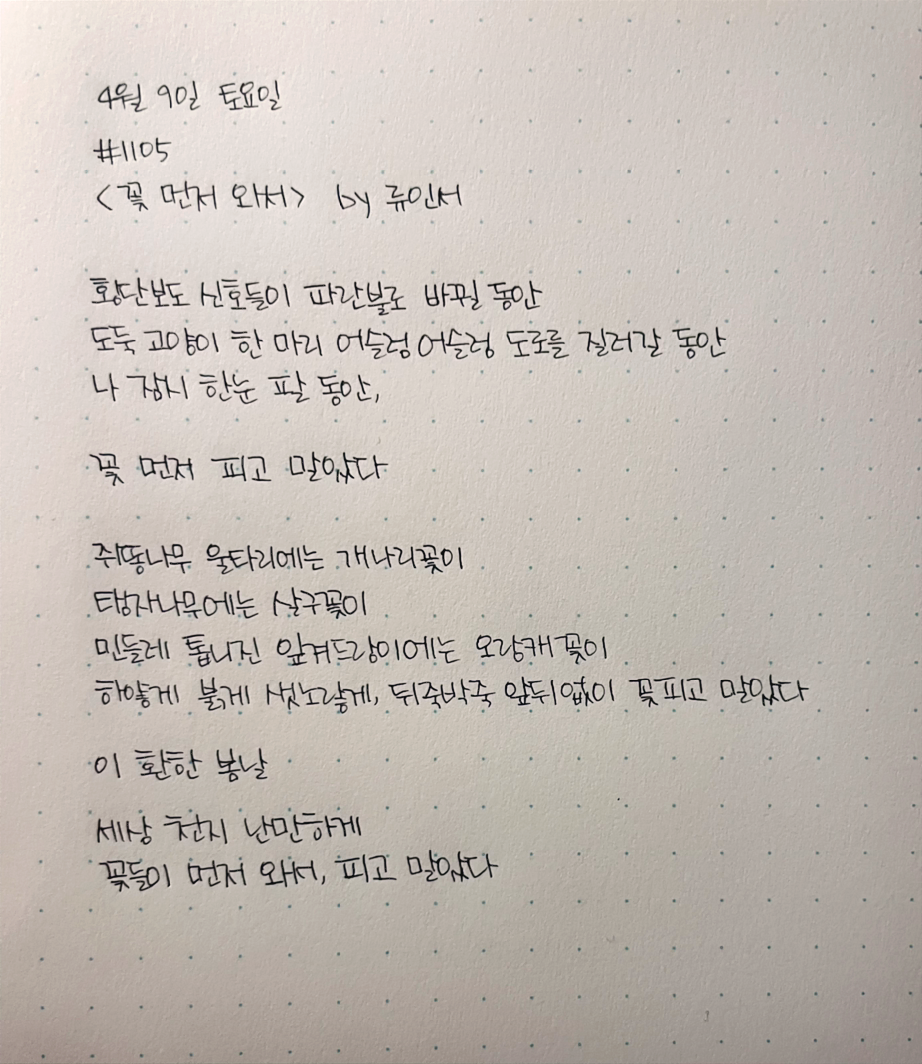 4월 9일 토요일
#1105
<꽃 먼저 와서> by 류인서
횡단보도 신호들이 파란불로 바뀔 동안
도둑 고양이 한 마리 어슬렁어슬렁 도로를 질러갈 동안
나 잠시 한눈 팔 동안,
꽃 먼저 피고 말았다
쥐똥나무 울타리에는 개나리꽃이
탱자나무에는 살구꽃이
민들레 톱니진 잎겨드랑이에는 오랑캐꽃이
하얗게 붉게 샛노랗게, 뒤죽박죽 앞뒤없이 꽃피고 말았다
이 환한 봄날
세상 천지 난만하게
꽃들이 먼저 와서, 피고 말았다